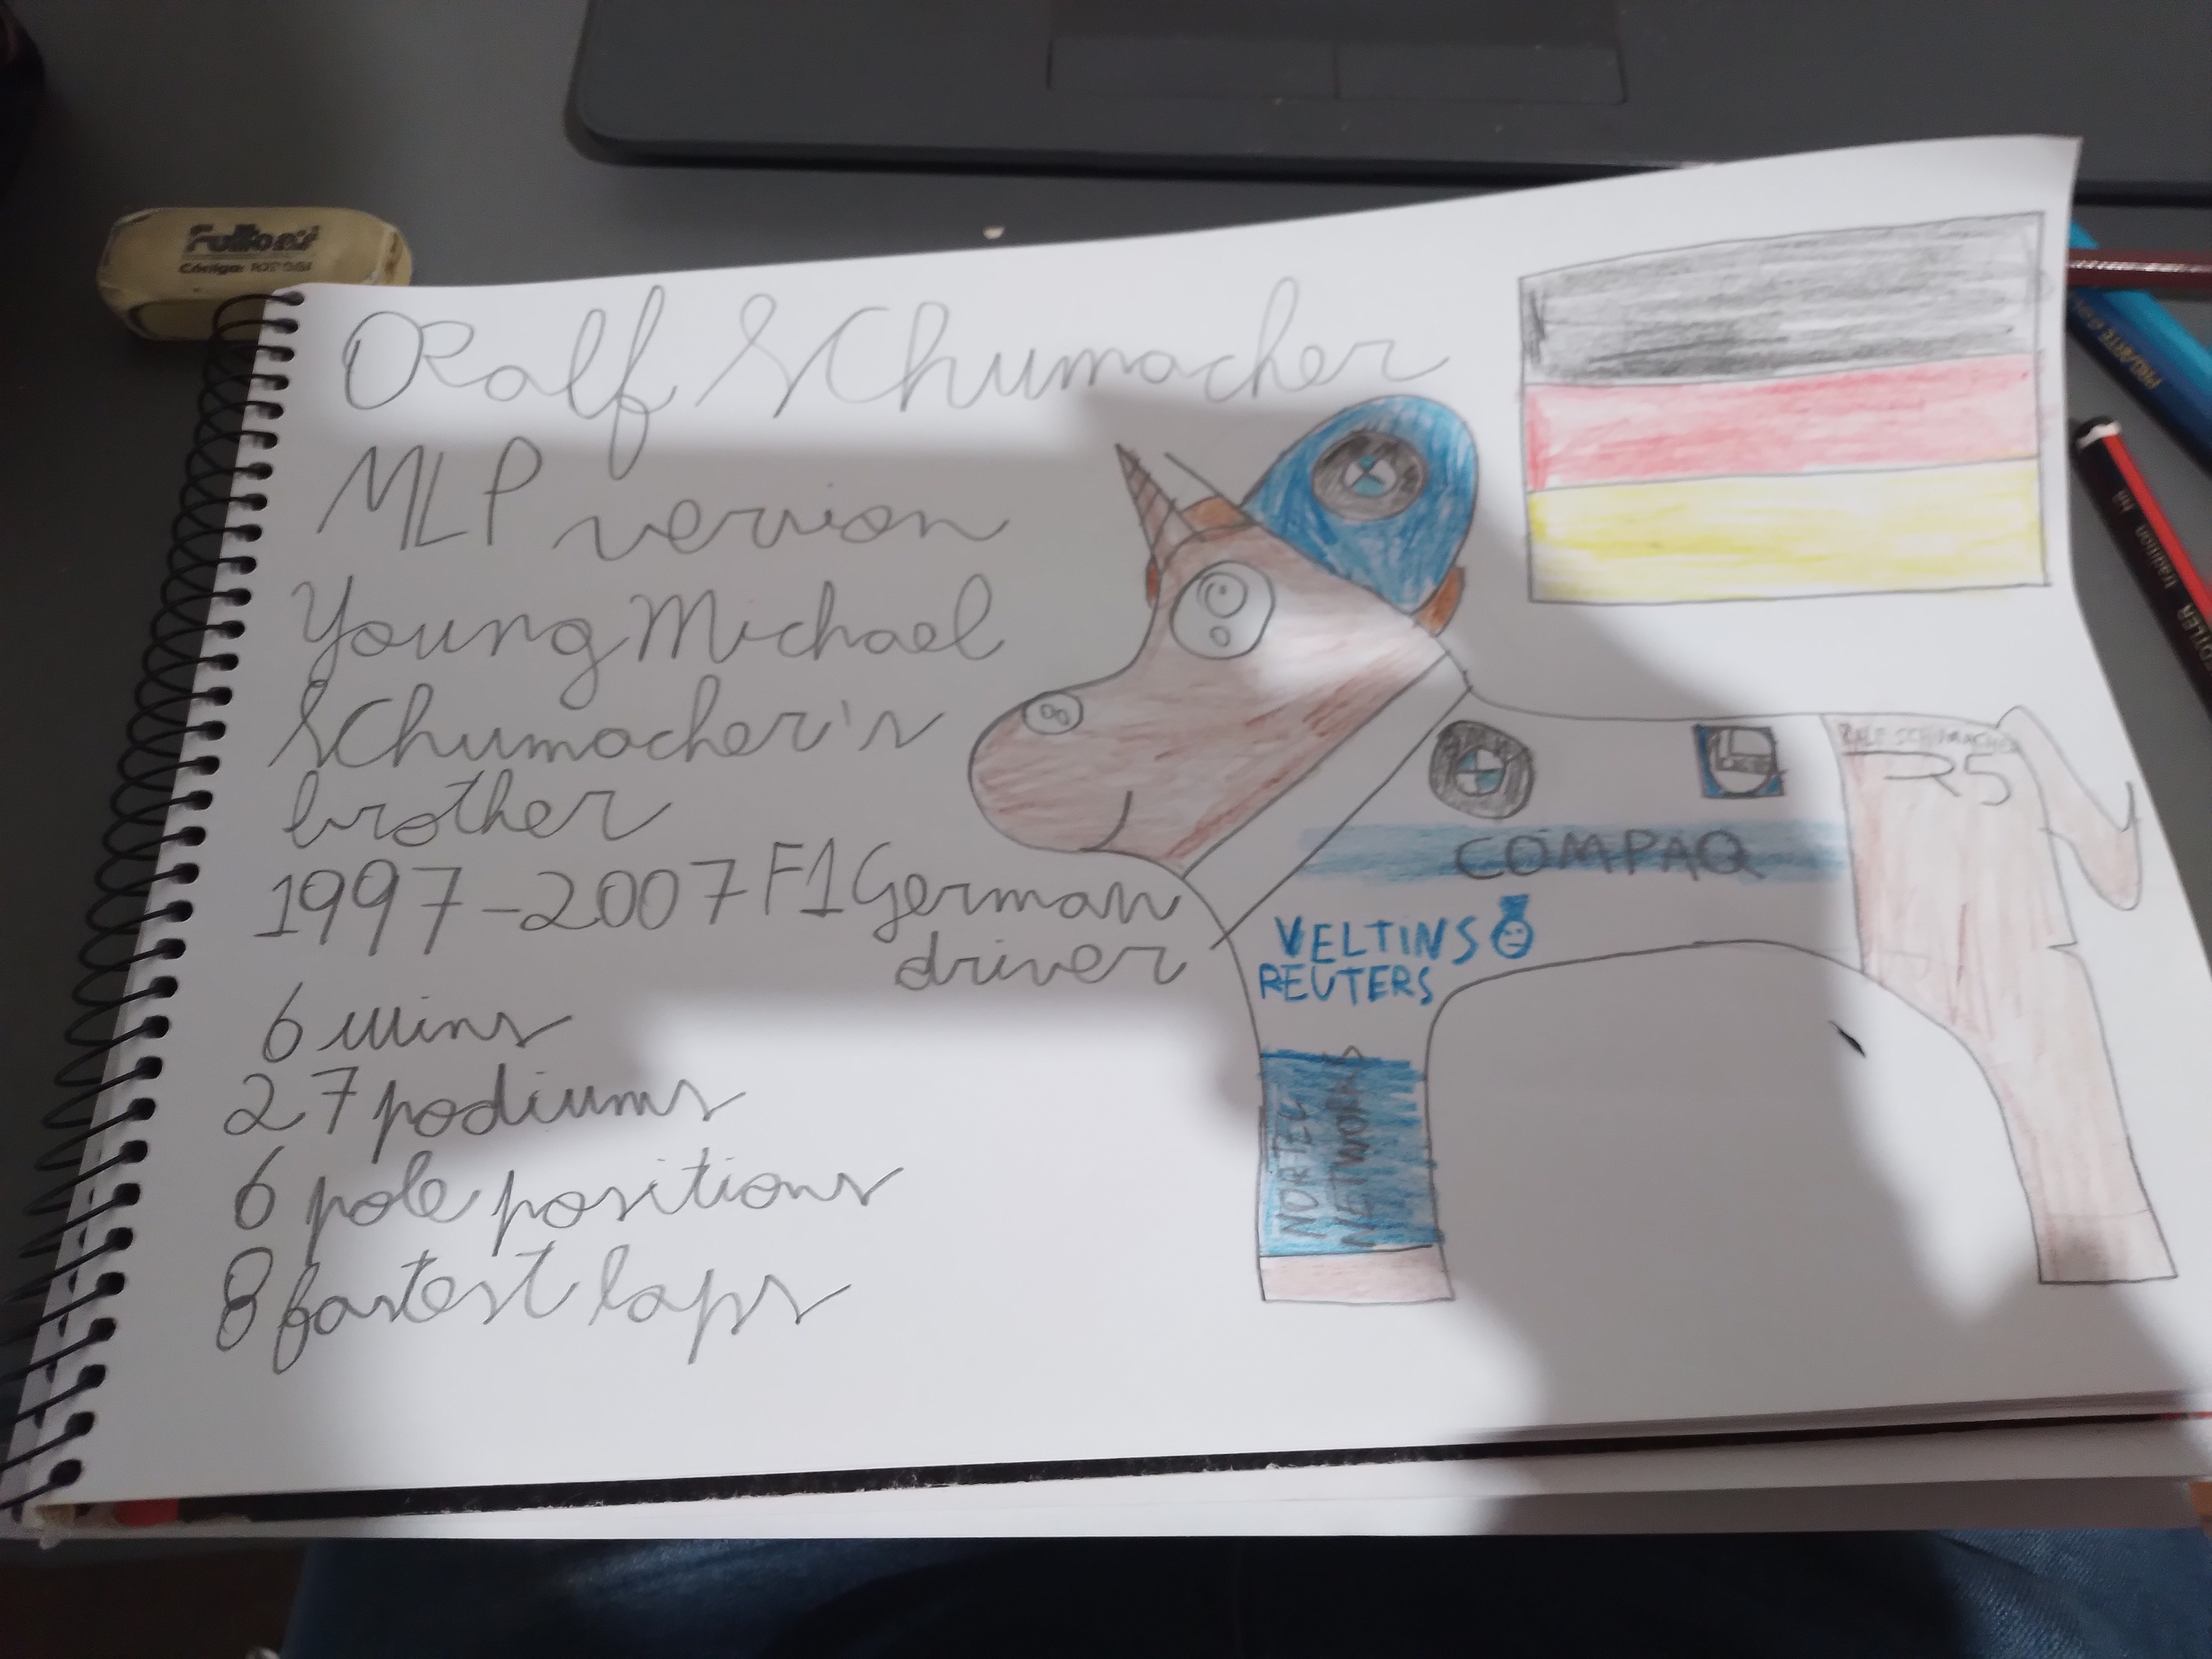 Ralf Schumacher
MLP version
Young Michael
Schumacher's
brother
1997-2007 F1 German
driver
6 wins
27 podiums
6 pole positions
8 fastest laps
RALF SCHUMACHER
R5
COMPAQ
VELTINS
REUTERS
NORTEL
NETWORKS
Fulltons
PROJARTE
tradition HB